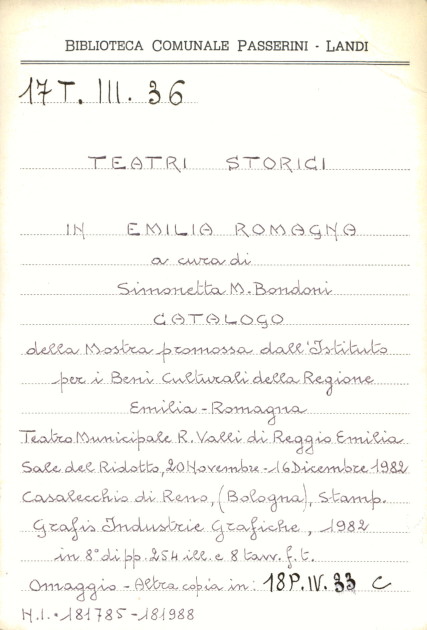 BIBLIOTECA COMUNALE PASSERINI - LANDI
17 T. III. 36
TEATRI STORICI
IN EMILIA ROMAGNA
a cura di
Simonetta M. Bondoni
CATALOGO
della Mostra promossa dall'Istituto
per i Beni Culturali della Regione
Emilia-Romagna
Teatro Municipale R. Valli di Reggio Emilia
Sale del Ridotto, 20 Novembre-16 Dicembre 1982
Casalecchio di Reno, (Bologna), Stamp.
Grafis Industrie Grafiche, 1982
in 8° di pp. 254 ill. e 8 tavv. f. t.
Omaggio - Altra copia in: 18 P. IV. 33 C
N.I. • 181785-181988